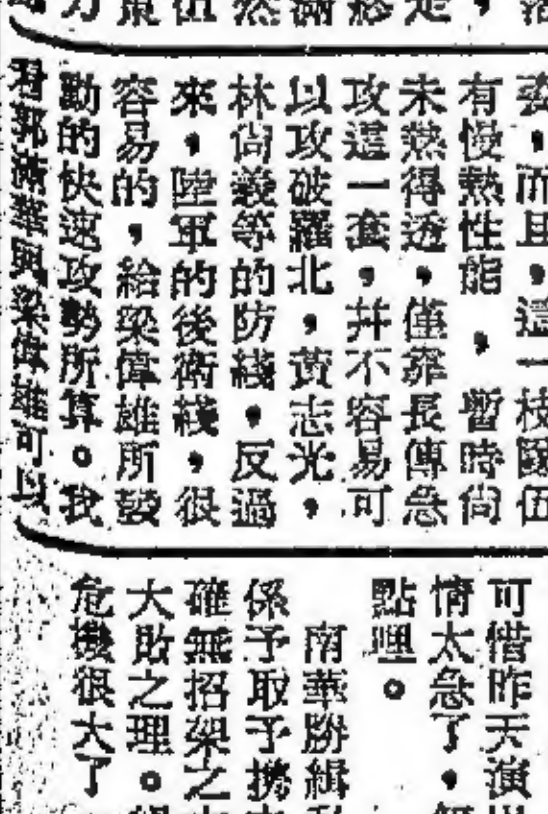 弈，而且，這一枝隊伍
有慢熱性能，暫時尚
未熱得透，僅靠長傳急
攻這一套，并不容易可
以攻破羅北，黃志光，
林尙義等的防綫，反過
來，陸軍的後衛綫，很
容易的，給梁偉雄所發
動的快速攻勢所算。我
君郭滿華與梁偉雄可以
可惜昨天演
情太急了，
點理。
南華勝緝
係予取予携
確無招架之
大敗之理。
危機很大了